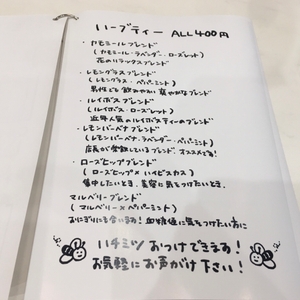 ハーブティー ALL400円
・カモミールブレンド
(カモミール・ラベンダー・ローズレット)
花のリラックスブレンド
・レモングラスブレンド
(レモングラス・ペパーミント)
男性にも飲みやすい爽やかなブレンド
・ルイボスブレンド
(ルイボス・ローズレット)
近年人気のルイボスティーのブレンド
・レモンバーベナブレンド
(レモンバーベナ・ラベンダー・ペパーミント)
店長が愛飲しているブレンド オススメです!
・ローズヒップブレンド
(ローズヒップ×ハイビスカス)
集中したいとき、美容に気をつけたいとき。
マルベリーブレンド
(マルベリー×ペパーミント)
おにぎりにも合います!血糖値に気をつけたい方に
ハチミツおつけできます!
お気軽にお声がけ下さい!